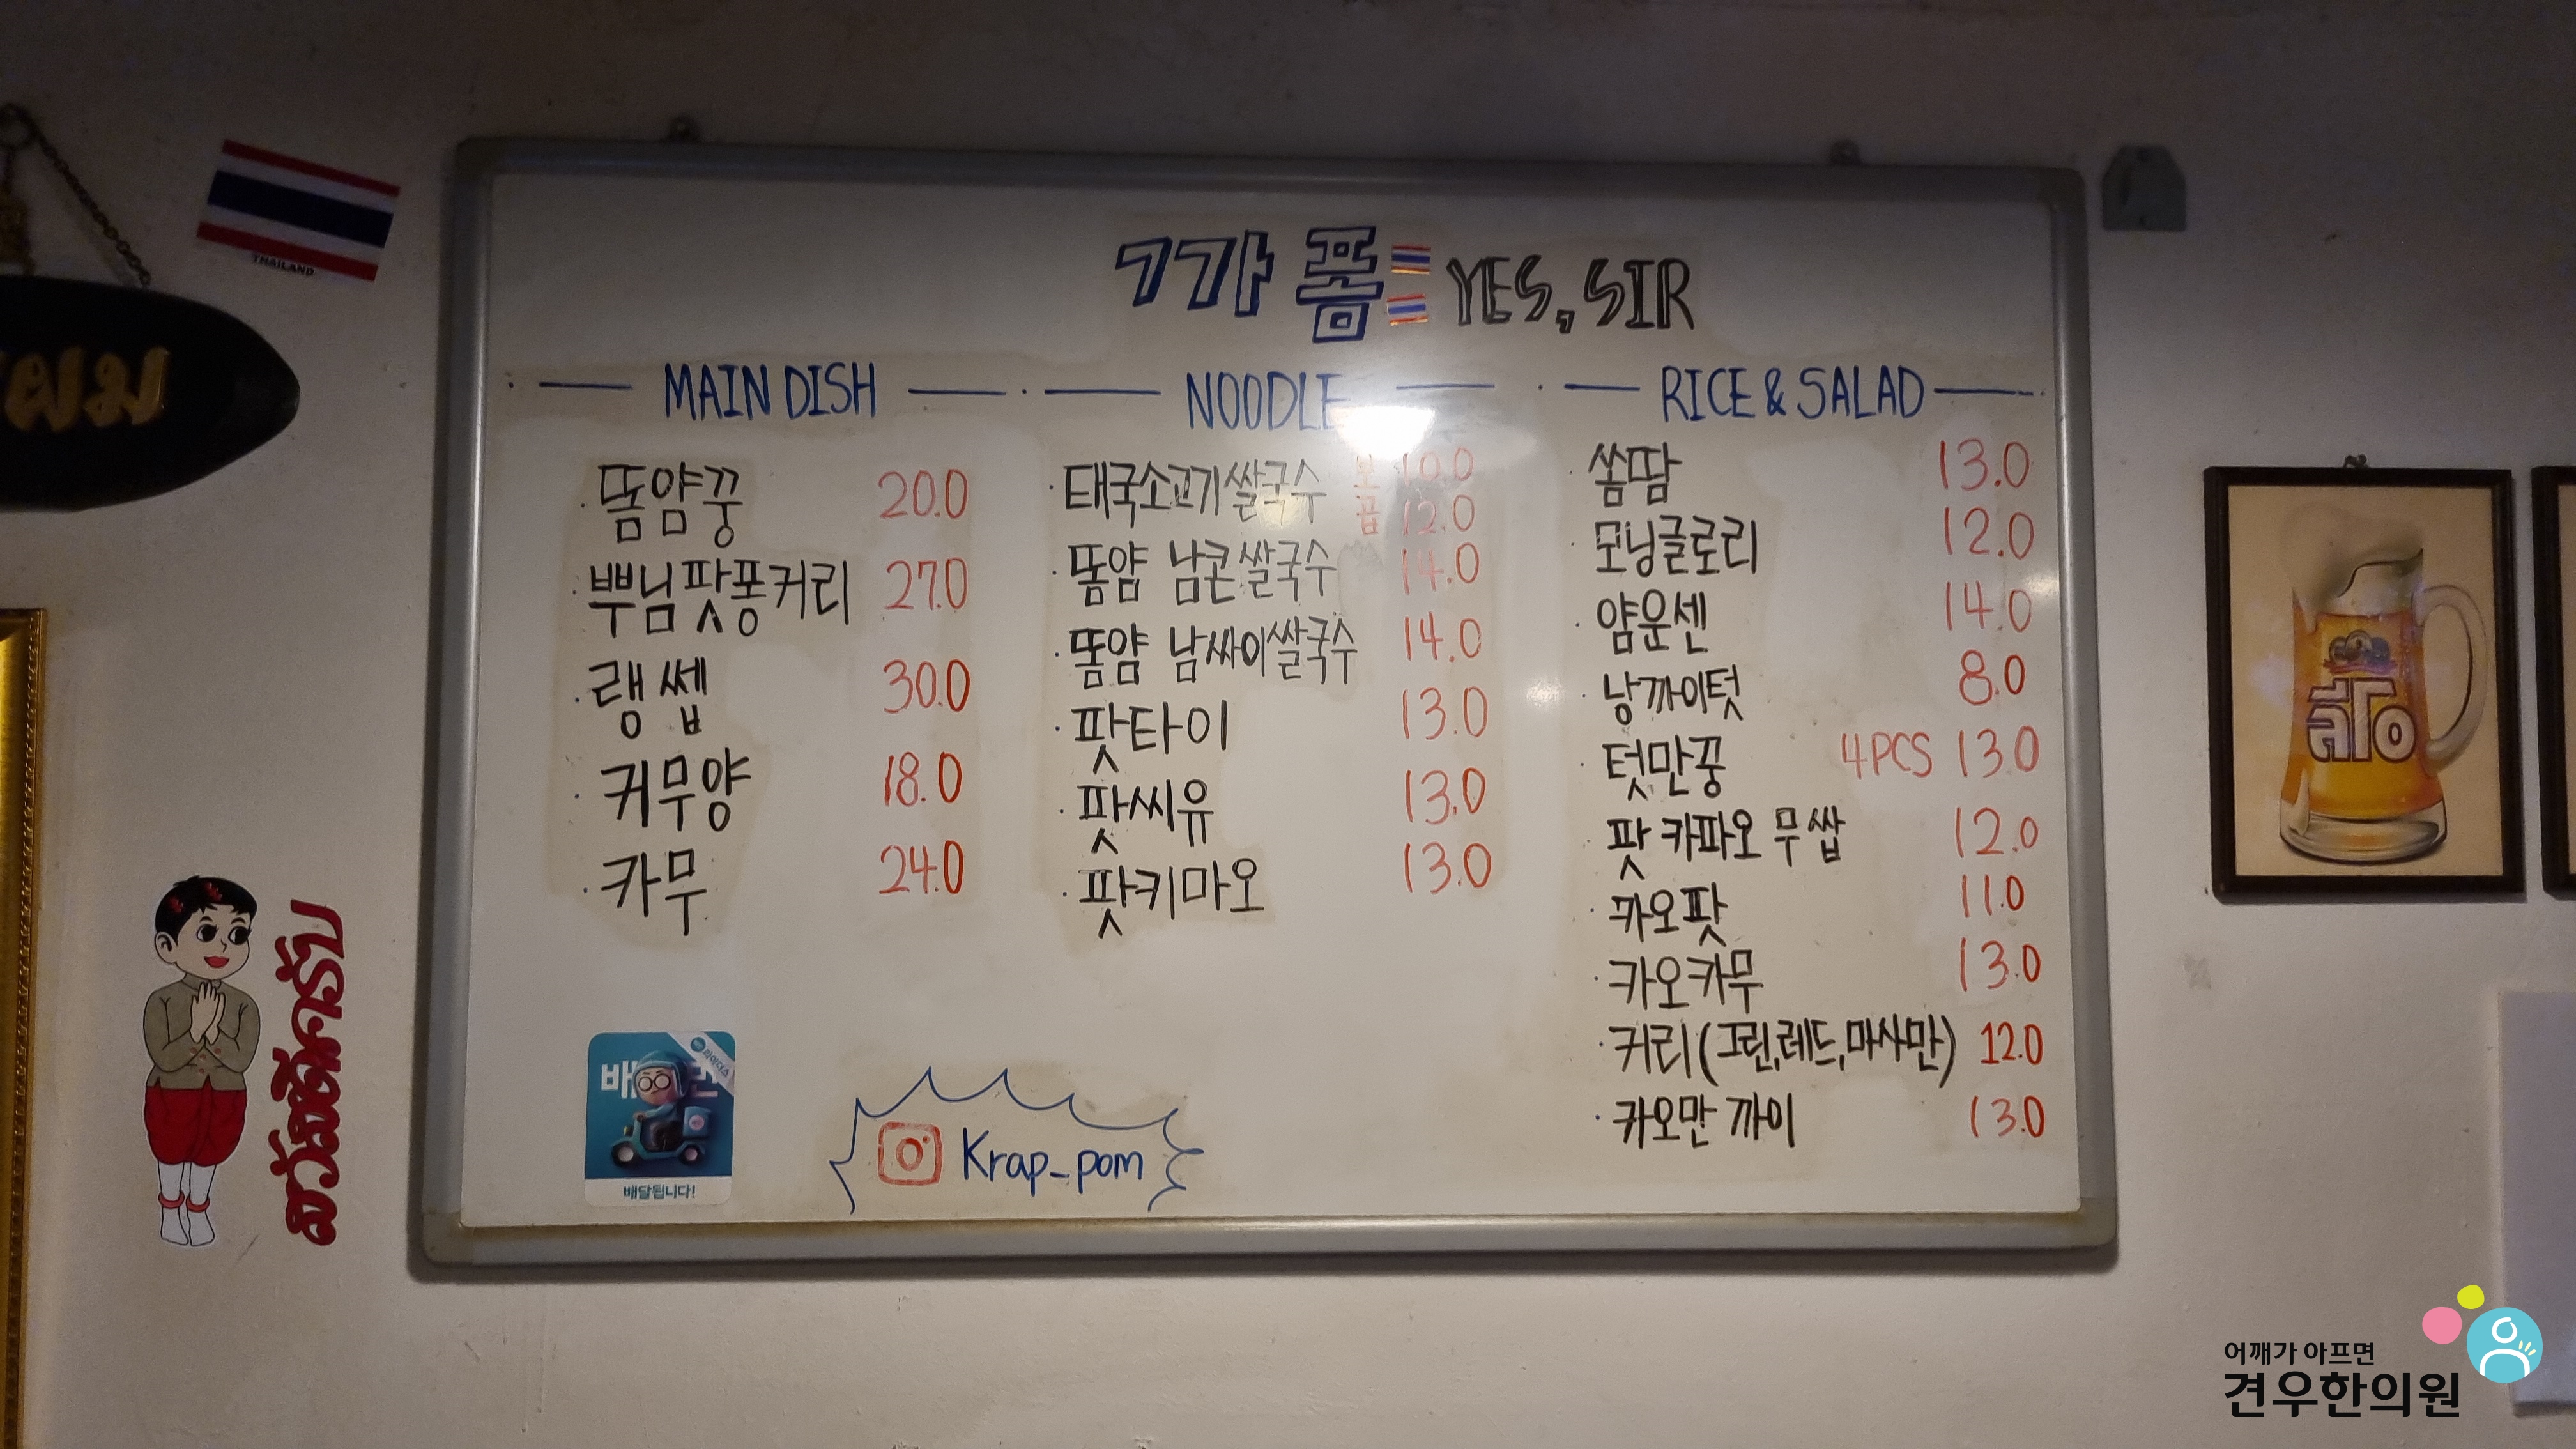 THAILAND
ผม
สวัสดีครับ
까폼 YES, SIR
MAIN DISH
똠얌꿍 20.0
뿌님팟퐁커리 27.0
랭쎕 30.0
커무양 18.0
카무 24.0
NOODLE
태국소고기쌀국수 보 10.0
곱 12.0
똠얌 남콘쌀국수 14.0
똠얌 남싸이쌀국수 14.0
팟타이 13.0
팟씨유 13.0
팟키마오 13.0
RICE & SALAD
쏨땀 13.0
모닝글로리 12.0
얌운센 14.0
낭까이텃 8.0
텃만꿍 4PCS 13.0
팟카파오 무쌉 12.0
카오팟 11.0
카오카무 13.0
커리(그린,레드,마사만) 12.0
카오만 까이 13.0
배달됩니다!
Krap_pom
어깨가 아프면
견우한의원